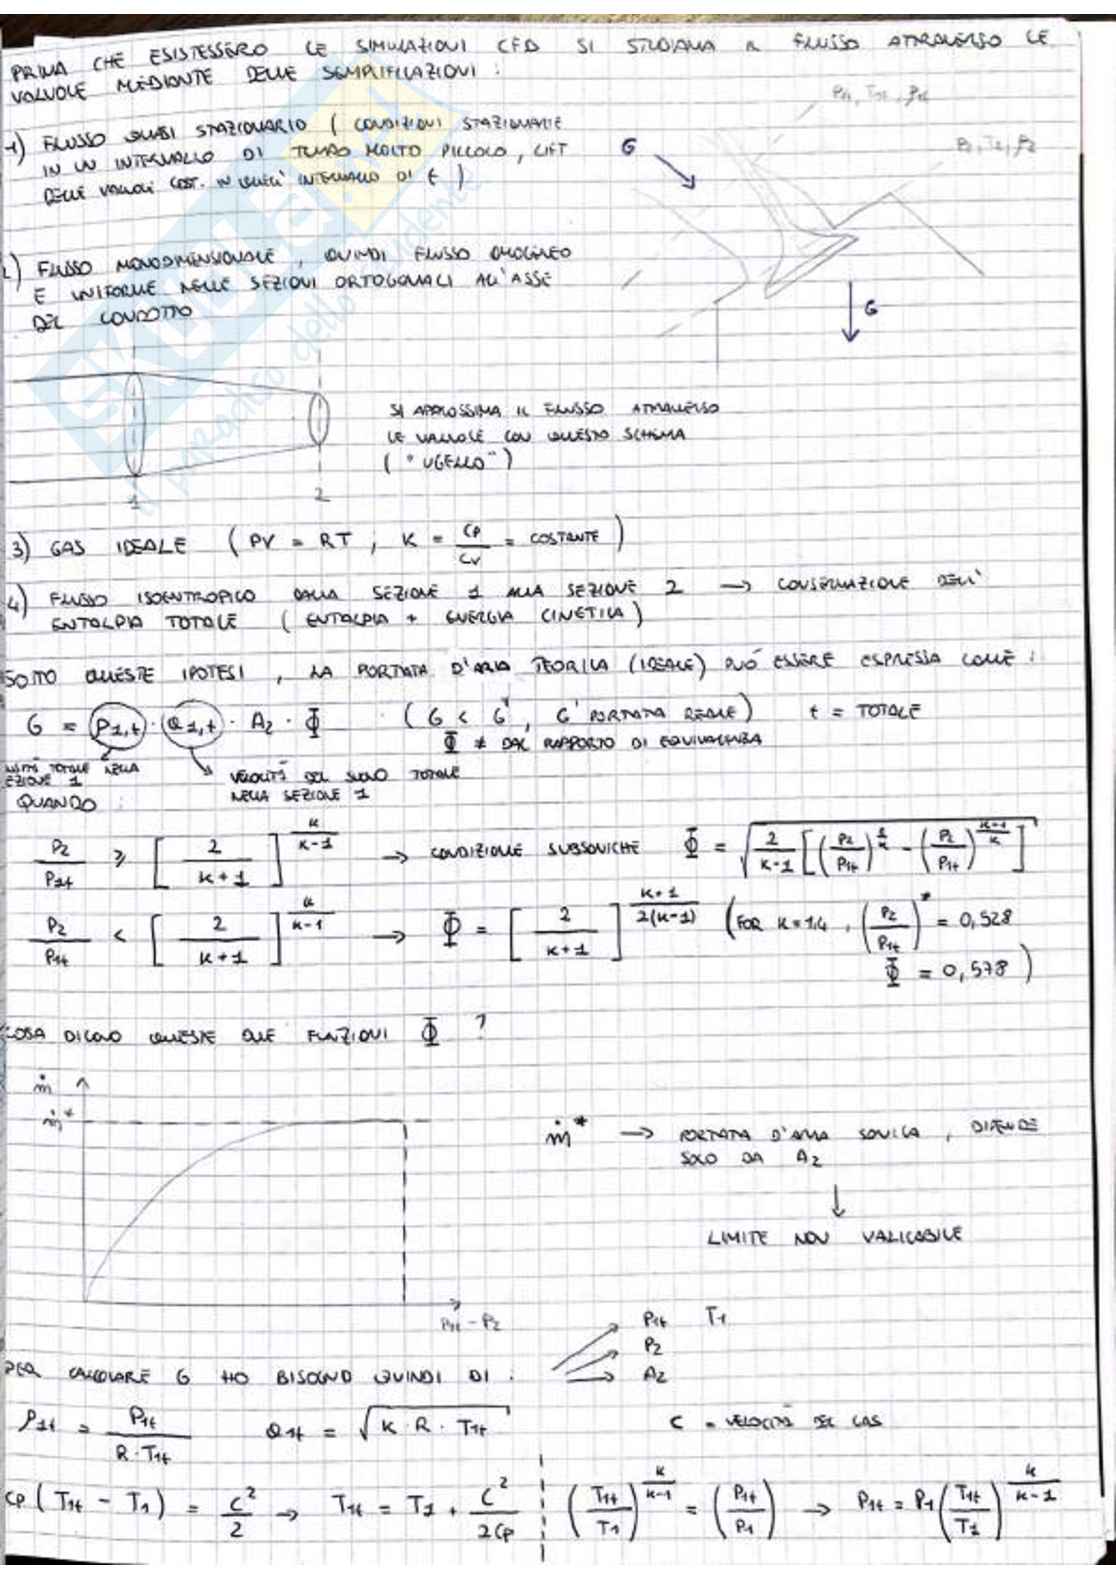 PRIMA CHE ESISTESSERO LE SIMULAZIONI CFD SI STUDIAVA IL FLUSSO ATTRAVERSO LE
VALVOLE MEDIANTE DELLE SEMPLIFICAZIONI :
P1t, T1t, ρ1t
P2, T2, ρ2
1) FLUSSO QUASI STAZIONARIO ( CONDIZIONI STAZIONARIE
IN UN INTERVALLO DI TEMPO MOLTO PICCOLO, LIFT
DELLE VALVOLE COST. IN QUELL' INTERVALLO DI t )
G
2) FLUSSO MONODIMENSIONALE, QUINDI FLUSSO OMOGENEO
E UNIFORME NELLE SEZIONI ORTOGONALI ALL'ASSE
DEL CONDOTTO
G
SI APPROSSIMA IL FLUSSO ATTRAVERSO
LE VALVOLE CON QUESTO SCHEMA
( "UGELLO" )
1 2
3) GAS IDEALE ( PV = RT , K = CP/CV = COSTANTE )
4) FLUSSO ISOENTROPICO DALLA SEZIONE 1 ALLA SEZIONE 2 → CONSERVAZIONE DELL'
ENTALPIA TOTALE ( ENTALPIA + ENERGIA CINETICA )
SOTTO QUESTE IPOTESI , LA PORTATA D'ARIA TEORICA (IDEALE) PUÒ ESSERE ESPRESSA COME :
G = ρ1,t · a1,t · A2 · Φ ( G < G' , G' PORTATA REALE ) t = TOTALE
Φ ≠ DAL RAPPORTO DI EQUIVALENZA
TOTALE NELLA
SEZIONE 1
VELOCITÀ DEL SUONO TOTALE
NELLA SEZIONE 1
QUANDO :
P2/P1t ≥ [2/(K+1)]^(K/(K-1)) → CONDIZIONE SUBSONICHE Φ = √(2/(K-1) [(P2/P1t)^(2/K) - (P2/P1t)^((K+1)/K)])
P2/P1t < [2/(K+1)]^(K/(K-1)) → Φ = [2/(K+1)]^((K+1)/(2(K-1))) (FOR K=1,4 , (P2/P1t)* = 0,528
Φ = 0,578 )
COSA DICONO QUESTE DUE FUNZIONI Φ ?
ṁ
ṁ*
ṁ* → PORTATA D'ARIA SONICA , DIPENDE
SOLO DA A2
↓
LIMITE NON VALICABILE
P1t - P2
P1t T1
P2
PER CALCOLARE G HO BISOGNO QUINDI DI : A2
ρ1t = P1t/(R·T1t) a1t = √(K·R·T1t) C = VELOCITÀ DEL GAS
CP ( T1t - T1 ) = C²/2 → T1t = T1 + C²/(2CP) (T1t/T1)^(K/(K-1)) = (P1t/P1) → P1t = P1 (T1t/T1)^(K/(K-1))